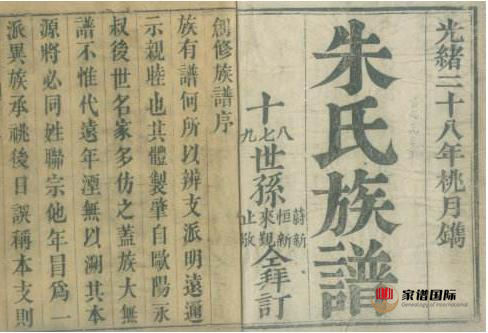 光緒二十八年桃月鐫
朱氏族譜
十八七九世孫蔚新恒新來觀止敬仝拜訂
創修族譜序
族有譜何所以辨支派明遠邇
示親睦也其體製肇自歐陽永
叔後世名家多仿之蓋族大無
譜不惟代遠年湮無以溯其本
源將必同姓聯宗他年目為一
派異族承祧後日誤稱本支則
家谱国际